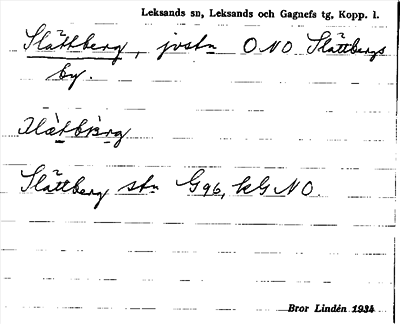 Leksands sn, Leksands och Gagnefs tg, Kopp. l.
Slättberg, jvstn ONO Slättbergs
by.
Slättberg stn G96, kG NO.
Bror Lindén 1934